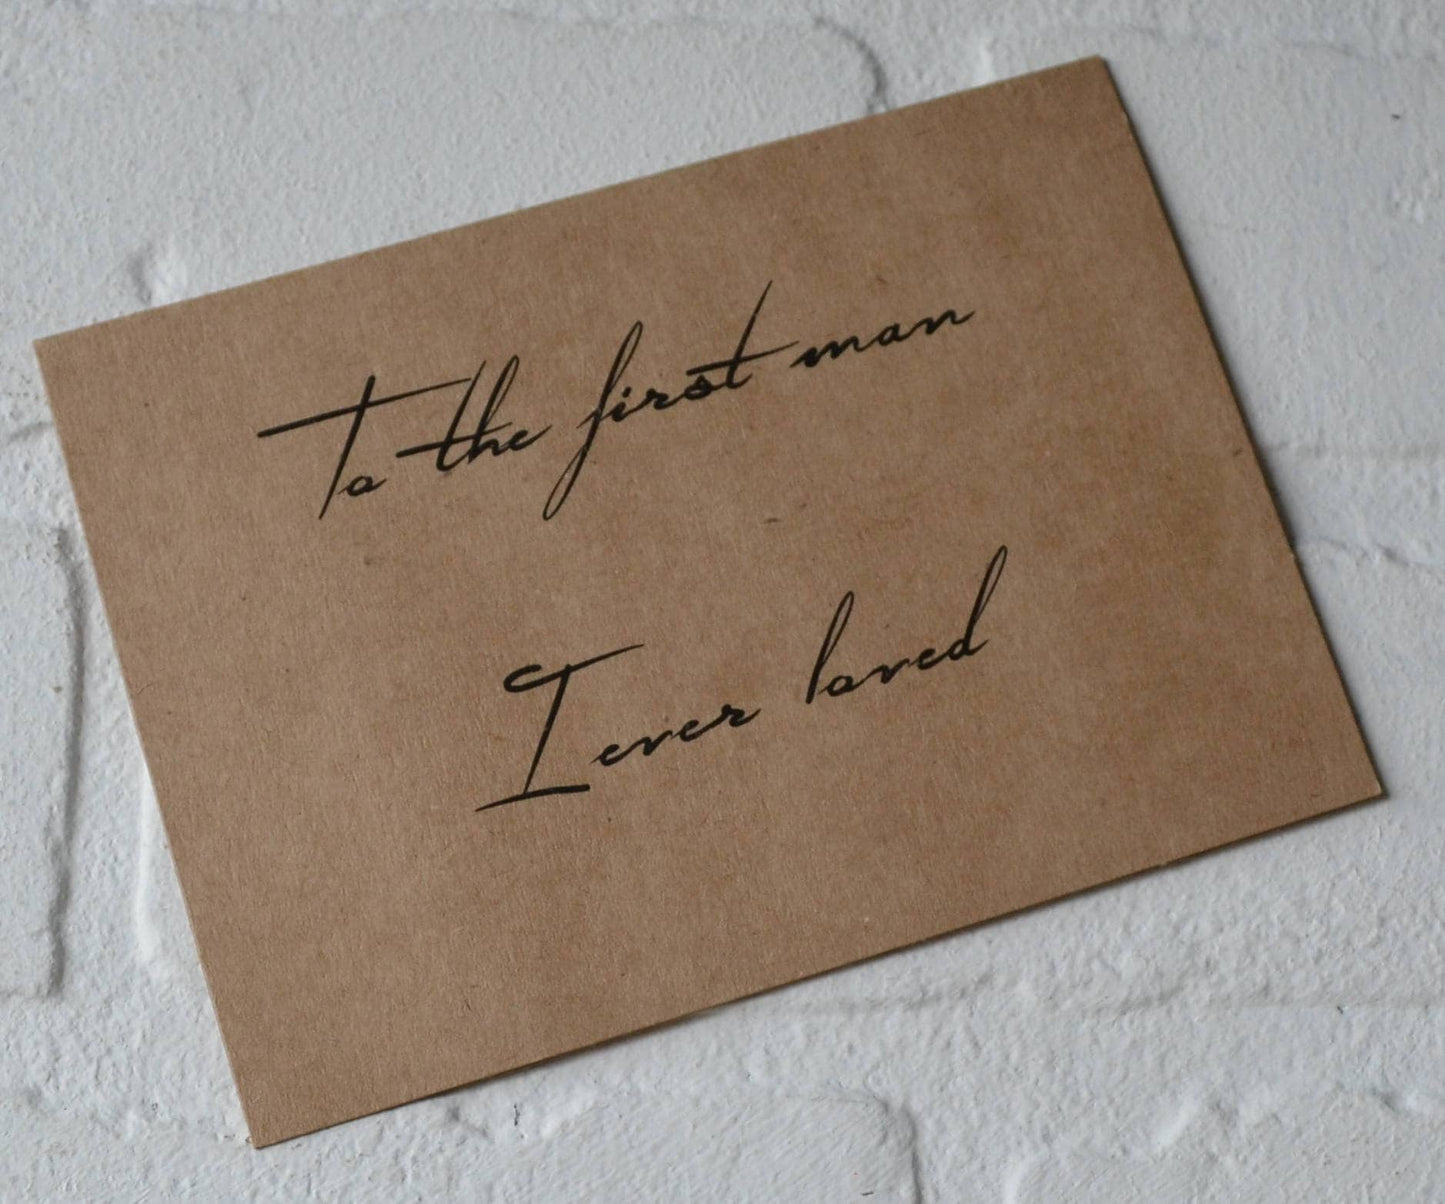 To the first man
I ever loved